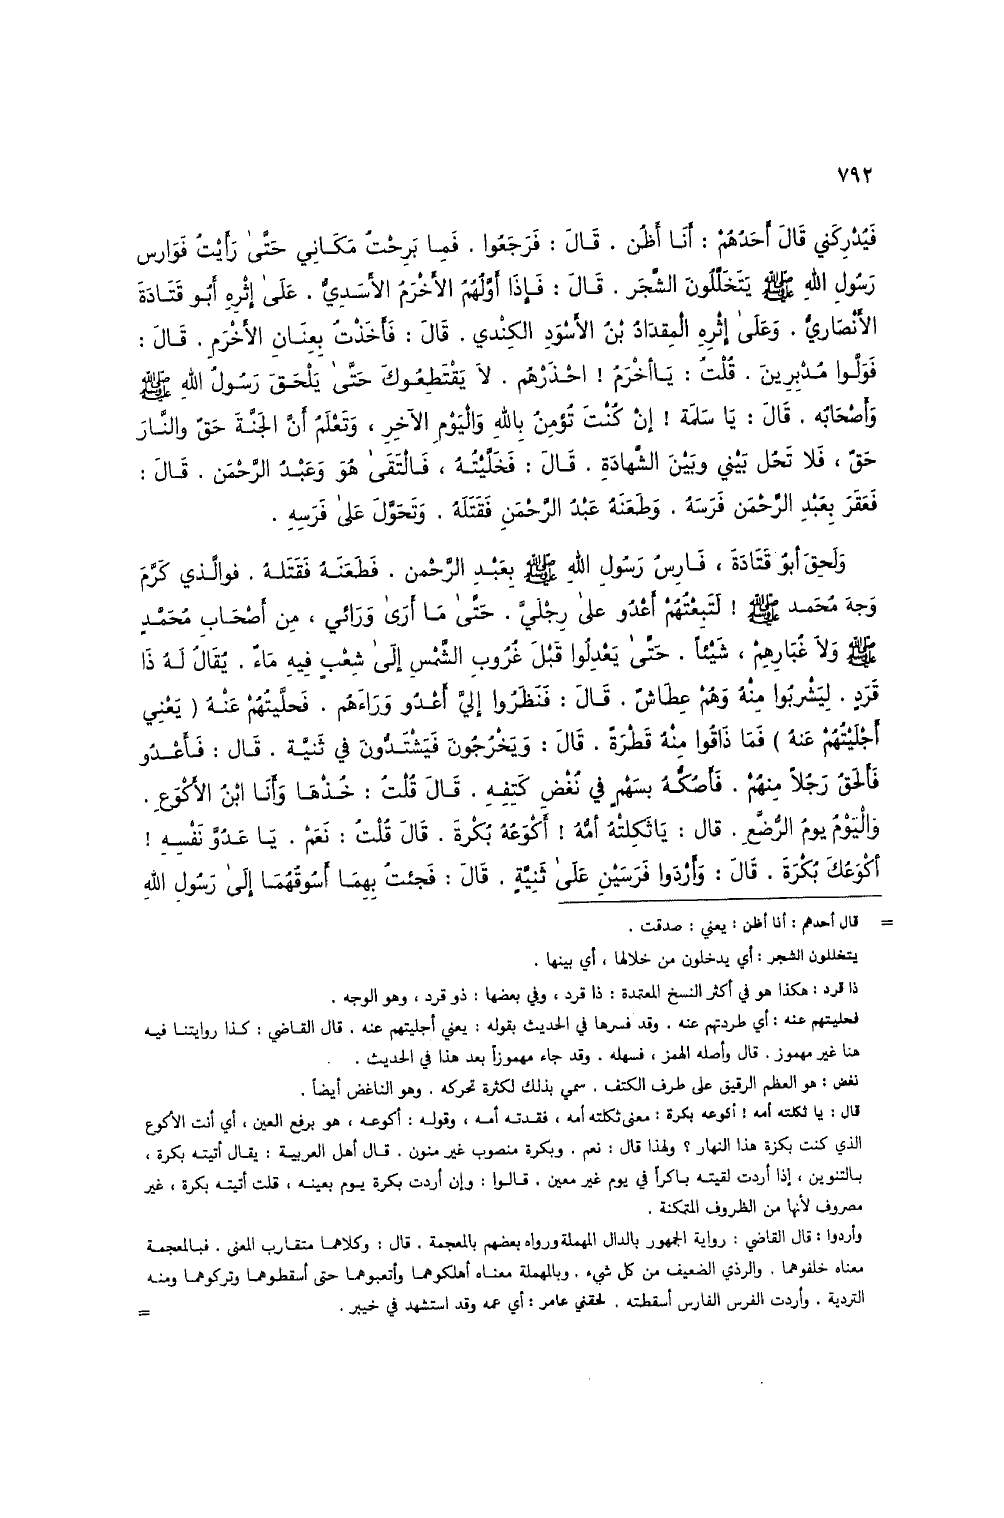 ٧٩٢
فَيُدْرِكَني قَالَ أَحَدُهُمْ : أَنَا أَظُن . قَالَ : فَرَجَعُوا . فَمِا بَرِحْتُ مَكَاني حَتَّىٰ رَأَيْتُ فَوَارس
رَسُولِ اللهِ ﷺ يَتَخَلَّلُونَ الشَّجَر . قَالَ : فَإِذَا أَوَّلُهُمُ الأَخْرَمُ الأَسَديُّ . عَلَىٰ إِثْرِهِ أَبُو قَتَادَةَ
الأَنْصَاريُّ . وَعَلَىٰ إِثْرِهِ الْمِقدَادُ بْنُ الأَسْوَدِ الكِندي . قَالَ : فَأَخَذْتُ بِعِنَانِ الأَخْرَمِ . قَالَ :
فَوَلَّوا مُدْبِرِينَ . قُلْتُ : يَاأَخْرَمُ ! احْذَرْهُم . لاَ يَقْتَطِعُوكَ حَتَّىٰ يَلْحَقَ رَسُولُ اللهِ ﷺ
وَأَصْحَابُه . قَالَ : يَا سَلَمَة ! إِنْ كُنْتَ تُؤمِنُ بِاللهِ وَالْيَوْمِ الآخِرِ ، وَتَعْلَمُ أَنَّ الجَنَّةَ حَقٌ والنَّارَ
حَقٌ ، فَلا تَحُل بَيْني وبَيْنَ الشَّهادَةِ . قَالَ : فَخَلَّيْتُهُ ، فَالْتَقَىٰ هُوَ وَعَبْدُ الرَّحْمَن . قَالَ :
فَعَقَرَ بِعَبْدِ الرَّحْمَن فَرَسَهُ . وَطَعَنَهُ عَبْدُ الرَّحْمَنِ فَقَتَلَهُ . وَتَحَوَّلَ عَلىٰ فَرَسِهِ .
وَلَحِقَ أَبُو قَتَادَةَ ، فَارِسُ رَسُولِ اللهِ ﷺ بِعَبْدِ الرَّحْمن . فَطَعَنَهُ فَقَتَلهُ . فوالَّذي كَرَّمَ
وَجهَ مُحَمد ﷺ ! لَتَبِعْتُهُمْ أَعْدُو علىٰ رِجْلَيَّ . حَتَّىٰ مَا أَرىٰ وَرَائي ، مِن أَصْحَابِ مُحَمَّدٍ
ﷺ وَلاَ غُبَارِهِمْ ، شَيْئاً . حَتَّىٰ يَعْدِلُوا قَبْلَ غُرُوبِ الشَّمْسِ إِلَىٰ شِعْبٍ فِيهِ مَاءٌ . يُقَالُ لَهُ ذَا
قَرَدٍ . لِيَشْرِبُوا مِنْهُ وَهُمْ عِطَاشٌ . قَالَ : فَنَظَرُوا إِليَّ أَعْدُو وَرَاءَهُم . فَحلَّيتُهُمْ عَنْهُ ( يَعْنِي
أَجْلَيْتُهُمْ عَنهُ ) فَمَا ذَاقُوا مِنْهُ قَطْرَةً . قَالَ : وَيَخْرُجُونَ فَيَشْتَدُّونَ فِي ثَنيَّة . قَال : فَأَعْدُو
فَأَلْحَقُ رَجُلاً مِنهُمْ . فَأَصُكُّهُ بِسَهْمٍ في نُغْضِ كَتِفِهِ . قَالَ قُلْتُ : خُذْهَا وَأَنَا ابْنُ الأَكْوَعِ .
وَالْيَوْمُ يومُ الرُّضَّعِ . قال : يَاثَكِلتْهُ أُمُّهُ ! أَكْوَعُهُ بُكْرةَ . قَالَ قُلْتُ : نَعَمْ . يَا عَدُوَّ نَفْسِهِ !
أَكْوَعُكَ بُكْرَةَ . قَالَ : وَأَرْدَوا فَرَسَيْنِ عَلَىٰ ثَنِيَّةٍ . قَالَ : فَجئتُ بِهِمَا أَسُوقُهُمَا إِلَىٰ رَسُولِ اللهِ
= قال أحدهم : أنا أظن : يعني : صدقت .
يتخللون الشجر : أي يدخلون من خلالها ، أي بينها .
ذا قرد : هكذا هو في أكثر النسخ المعتمدة : ذا قرد ، وفي بعضها : ذو قرد ، وهو الوجه .
فحليتهم عنه : أي طردتهم عنه . وقد فسرها في الحديث بقوله : يعني أجليتهم عنه . قال القاضي : كذا روايتنا فيه
هنا غير مهموز . قال وأصله الهمز ، فسهله . وقد جاء مهموزاً بعد هذا في الحديث .
نغض : هو العظم الرقيق على طرف الكتف . سمي بذلك لكثرة تحركه . وهو الناغض أيضاً .
قال : يا ثكلته أمه ! أكوعه بكرة : معنى ثكلته أمه ، فقدته أمه ، وقوله : أكوعه ، هو برفع العين ، أي أنت الأكوع
الذي كنت بكرة هذا النهار ؟ ولهذا قال : نعم . وبكرة منصوب غير منون . قال أهل العربية : يقال أتيته بكرة ،
بالتنوين ، إذا أردت لقيته باكراً في يوم غير معين . قالوا : وإن أردت بكرة يوم بعينه ، قلت أتيته بكرة ، غير
مصروف لأنها من الظروف المتمكنة .
وأردوا : قال القاضي : رواية الجمهور بالدال المهملة ورواه بعضهم بالمعجمة . قال : وكلاهما متقارب المعنى . فبالمعجمة
معناه خلفوهما . والرذي الضعيف من كل شيء . وبالمهملة معناه أهلكوهما وأتعبوهما حتى أسقطوهما وتركوهما ومنه
التردية . وأردت الفرس الفارس أسقطته . لحقني عامر : أي عمه وقد استشهد في خيبر .
=